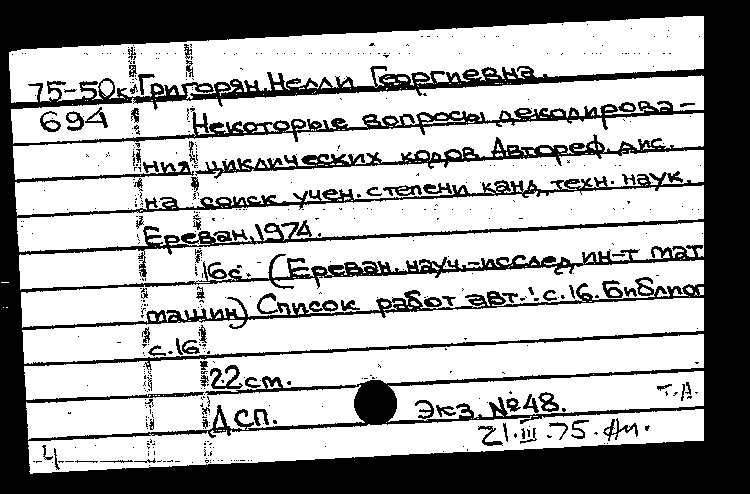 75-50к Григорян, Нелли Георгиевна.
694 Некоторые вопросы декодирова-
ния циклических кодов. Автореф. дис.
на соиск. учен. степени канд. техн. наук.
Ереван, 1974.
16с. (Ереван. науч.-исслед. ин-т мат
машин) Список работ авт.: с. 16. Библиог
с. 16
22см.
ДСП. Экз. №48. Т.А.
21.III.75.
4